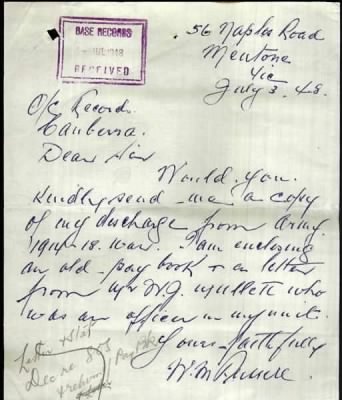 BASE RECORDS
JUL 1948
RECEIVED
56 Naples Road
Mentone
Vic
July 3. 48.
O/C Records
Canberra.
Dear Sir
Would you
Kindly send me a copy
of my discharge from Army
1914-18. war. I am enclosing
an old pay book & a letter
from Mr W.J. Mullett who
was an officer in my unit.
Yours faithfully
W. M.
Letter & Stat
Dec re 8
Pay Bk